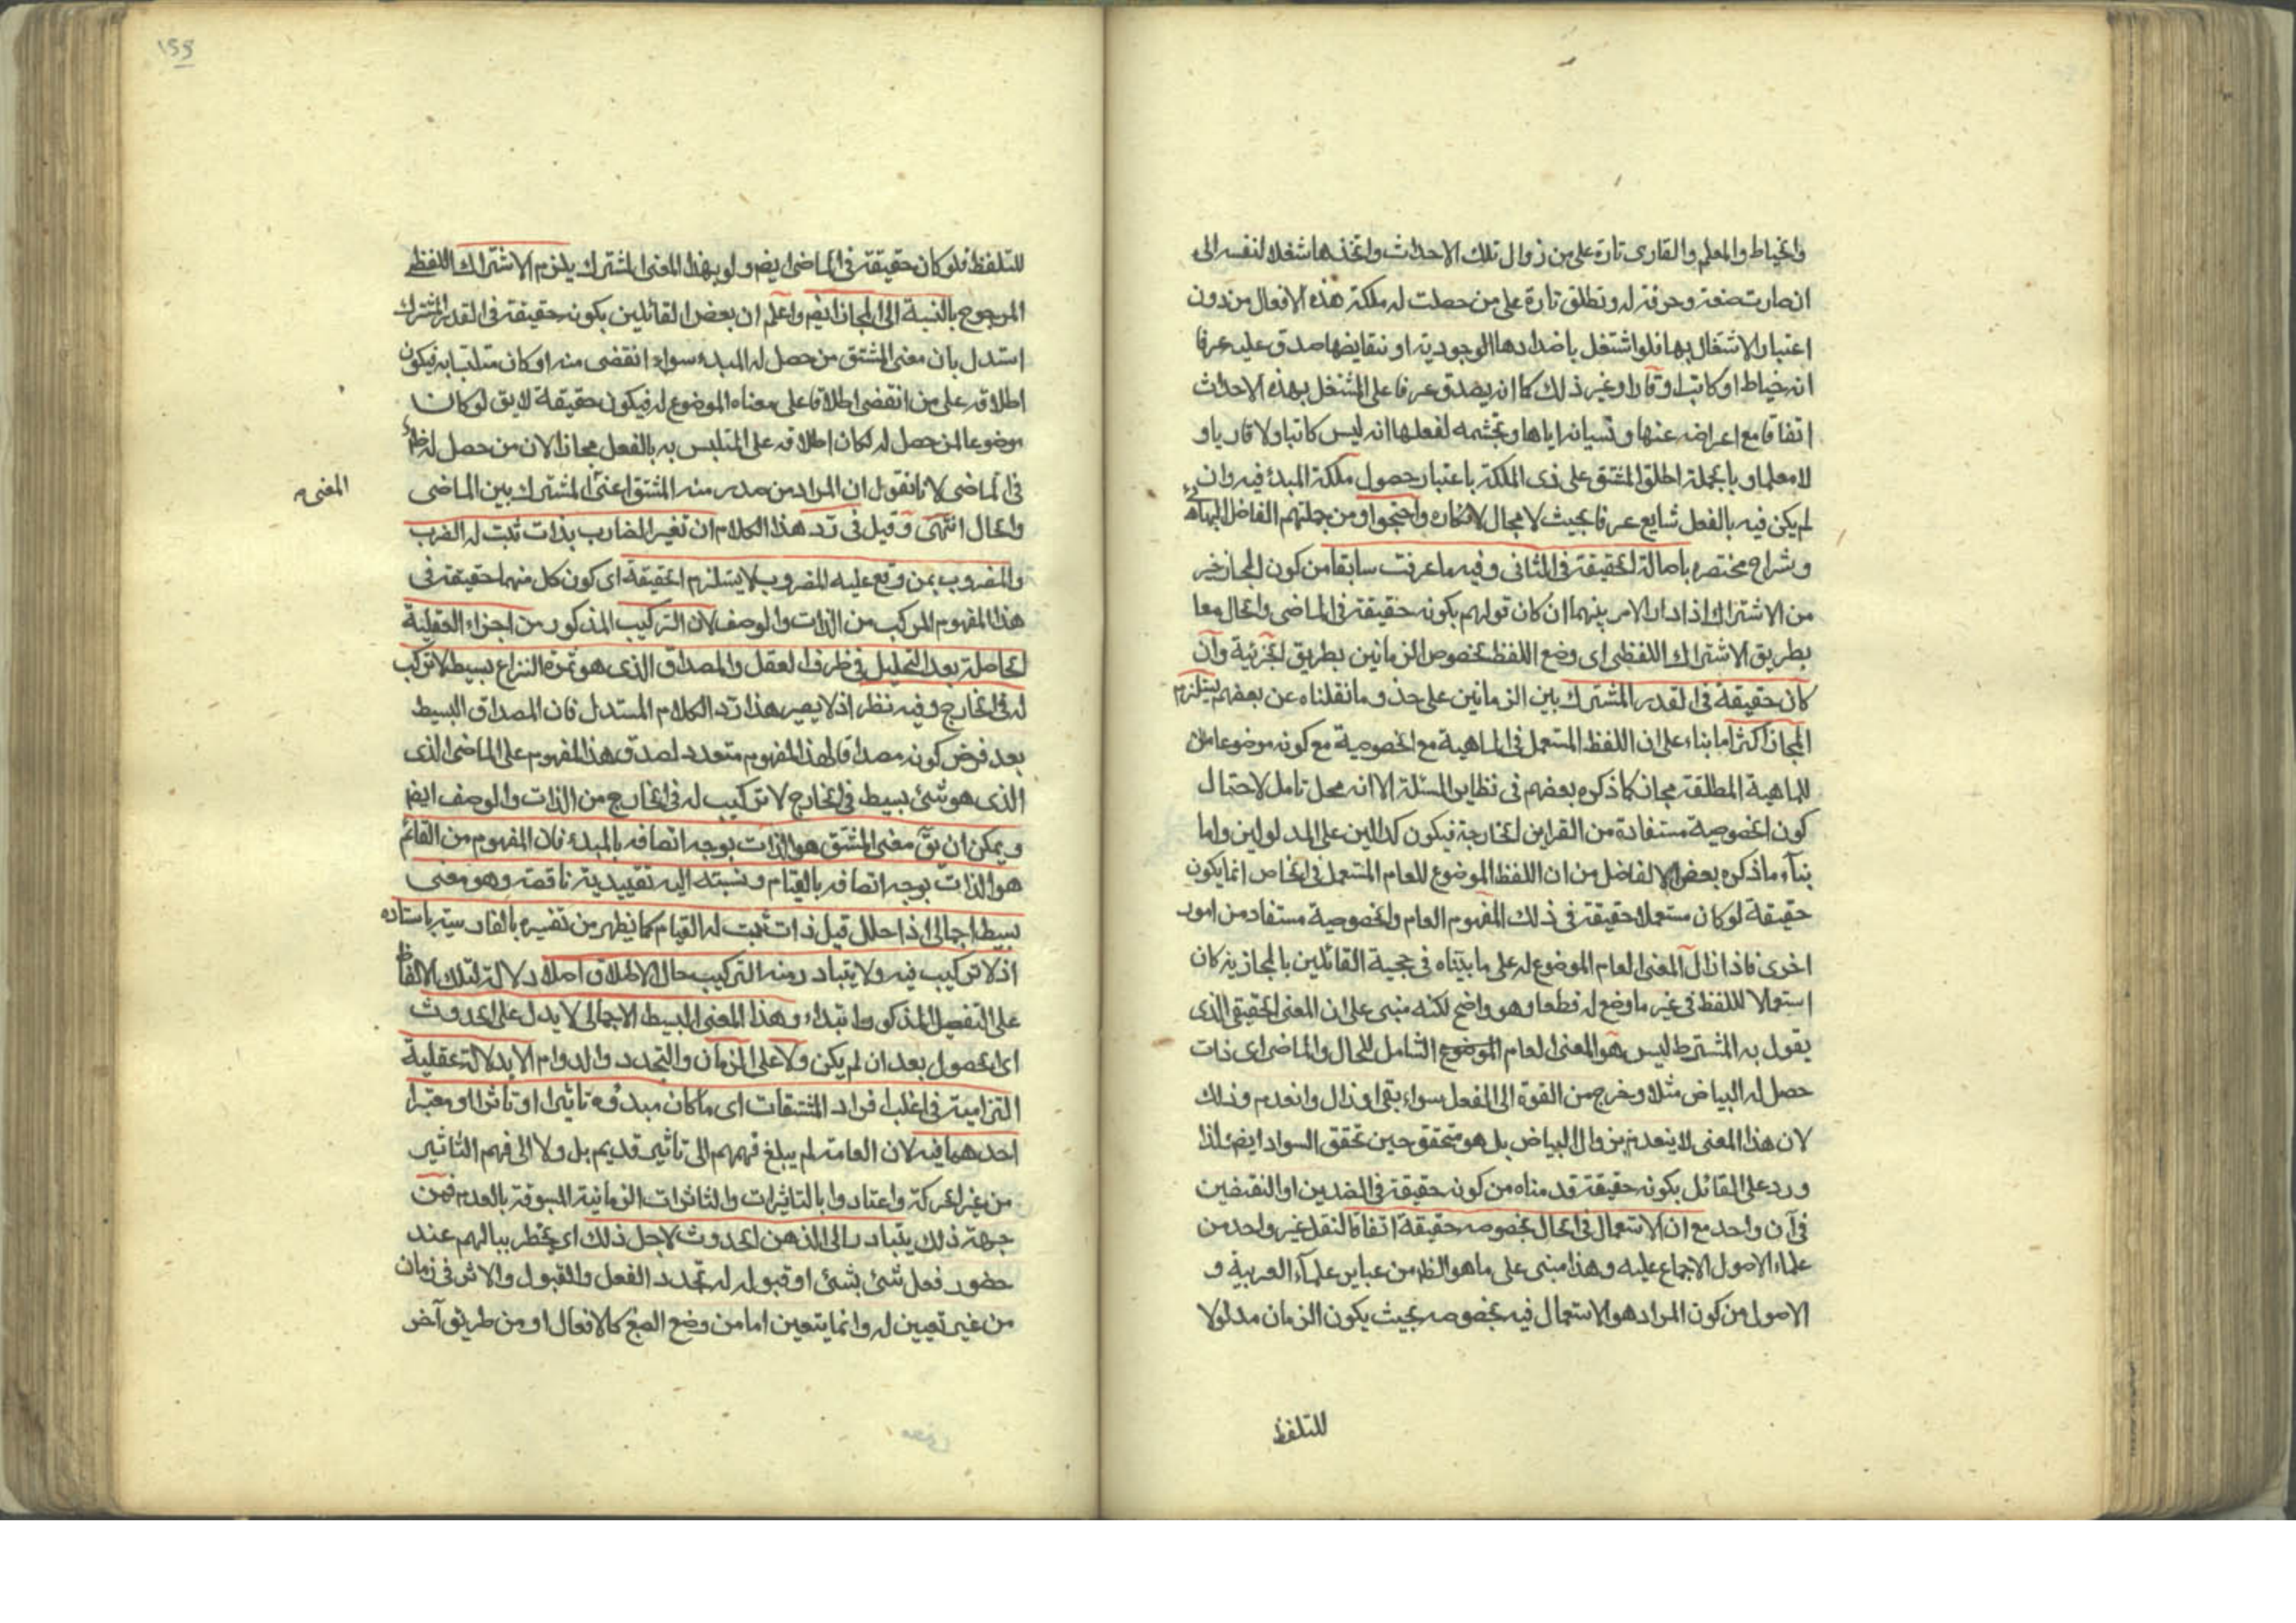 والخياط والمعلم والقارى تارة على من زوال تلك الاحداث واتخذها شغلا لنفسه الى
ان صارت صنعة وحرفة له وتطلق تارة على من حصلت له ملكة هذه الافعال من دون
اعتبار الاشتغال بها فلو اشتغل باضدادها الوجودية او نقايضها صدق عليه عرفا
انه خياط او كاتب او قار او غير ذلك كما انه يصدق عرفا على المشتغل بهذه الاحداث
اتفاقا مع اعراضه عنها ونسيانه اياها وتجشمه لفعلها انه ليس كاتبا ولا قاريا و
لا معلما وبالجملة اطلاق المشتق على ذى الملكة باعتبار حصول ملكة المبدء فيه وان
لم يكن فيه بالفعل شايع عرفا بحيث لا مجال لانكاره واحتجوا ومن جملتهم الفاضل البهائى
وشراح مختصره باصالة الحقيقة فى الثانى وفيه ما عرفت سابقا من كون المجاز خير
من الاشتراك اذا دار الامر بينهما ان كان قولهم بكونه حقيقة فى الماضى والحال معا
بطريق الاشتراك اللفظى اى وضع اللفظ بخصوص الزمانين بطريق الجزئية وان
كان حقيقة فى القدر المشترك بين الزمانين على حذو ما نقلناه عن بعضهم يستلزم
المجاز اكثر اما بناء على ان اللفظ المستعمل فى الماهية مع الخصوصية مع كونه موضوعا
للماهية المطلقة مجاز كما ذكره بعضهم فى نظاير المسئلة الا انه محل تامل لاحتمال
كون الخصوصية مستفادة من القراين الخارجة فيكون كدالين على المدلولين واما
بناء ما ذكره بعض الافاضل من ان اللفظ الموضوع للعام المستعمل فى الخاص انما يكون
حقيقة لو كان مستعملا حقيقة فى ذلك المفهوم العام والخصوصية مستفاد من امور
اخرى فاذا زال المعنى العام الموضوع له على ما بيناه فى حجية القائلين بالمجازية كان
استعمالا للفظ فى غير ما وضع له قطعا وهو واضح لكنه مبنى على ان المعنى الحقيقى الذى
يقول به المشترط ليس هو المعنى العام الموضوع الشامل للحال والماضى اى ذات
حصل له البياض مثلا وخرج من القوة الى الفعل سواء بقى او زال وانعدم وذلك
لان هذا المعنى لا ينعدم بزوال البياض بل هو متحقق حين تحقق السواد ايضا لذا
ورد على القائل بكونه حقيقة قدمناه من كونه حقيقة فى الضدين او النقيضين
فى آن واحد مع ان الاستعمال فى الحال بخصوصه حقيقة اتفاقا لنقل غير واحد من
علماء الاصول الاجماع عليه وهذا مبنى على ما هو الظ من عباير علماء العربية و
الاصول من كون المراد هو الاستعمال فيه بخصوصه بحيث يكون الزمان مدلولا
للتلفظ
١٥٥
للتلفظ فلو كان حقيقة فى الماضى ايضم ولو بهذا المعنى المشترك يلزم الاشتراك اللفظى
المرجوح بالنسبة الى المجاز ايضم واعلم ان بعض القائلين بكونه حقيقة فى القدر المشترك
استدل بان معنى المشتق من حصل له المبدء سواء انقضى منه او كان متلبسا به فيكون
اطلاقه على من انقضى اطلاقا على معناه الموضوع له فيكون حقيقة لايق لو كان
موضوعا لمن حصل له لكان اطلاقه على المتلبس به بالفعل مجازا لان من حصل له ظ
فى الماضى لانا نقول ان المراد من صدر منه المشتق اعنى المشترك بين الماضى
المعنى
والحال انتهى وقيل فى رد هذا الكلام ان تفسير الضارب بذات ثبت له الضرب
والمضروب بمن وقع عليه المضروب لا يستلزم الحقيقة اى كون كل منهما حقيقة فى
هذا المفهوم المركب من الذات والوصف لان التركيب المذكور من اجزاء العقلية
الحاصلة بعد التحليل فى ظرف العقل والمصداق الذى هو ثمرة النزاع بسيط لا تركب
له فى الخارج وفيه نظر اذ لا يصير هذا رد الكلام المستدل فان المصداق البسيط
بعد فرض كونه مصداقا لهذا المفهوم متعدد لصدق هذا المفهوم على الماضى الذى
الذى هو شئ بسيط فى الخارج لا تركيب له فى الخارج من الذات والوصف ايضم
ويمكن ان يق معنى المشتق هو الذات بوجه اتصافه بالمبدء فان المفهوم من القائم
هو الذات بوجه اتصافه بالقيام ونسبته اليه تقييدية ناقصة وهو معنى
بسيط اجمالى اذا حلل قيل ذات ثبت له القيام كما يظهر من تفسيره بالفارسية باستاده
اذ لا تركيب فيه ولا يتبادر منه التركيب حال الاطلاق اصلا ودلالة لتلك الالفاظ
على التفصيل المذكور ابتداء وهذا المعنى البسيط الاجمالى لا يدل على الحدوث
اى الحصول بعد ان لم يكن ولا على الزمان والتجدد والدوام الا بدلالة عقلية
التزامية فى اغلب افراد المشتقات اى ما كان مبدؤه تاثيرا او تاثرا او معتبرا
احدهما فيه لان العامة لم يبلغ فهمهم الى تاثير قديم بل ولا الى فهم التاثير
من غير الحركة واعتادوا بالتاثيرات والتاثرات الزمانية المسبوقة بالعدم فمن
جهة ذلك يتبادر الى الذهن الحدوث لاجل ذلك اى يخطر ببالهم عند
حضور فعل شئ بشئ او قبوله له تجدد الفعل والقبول والاثر فى زمان
من غير تعيين له وانما يتعين اما من وضع الصيغ كالافعال او من طريق آخر